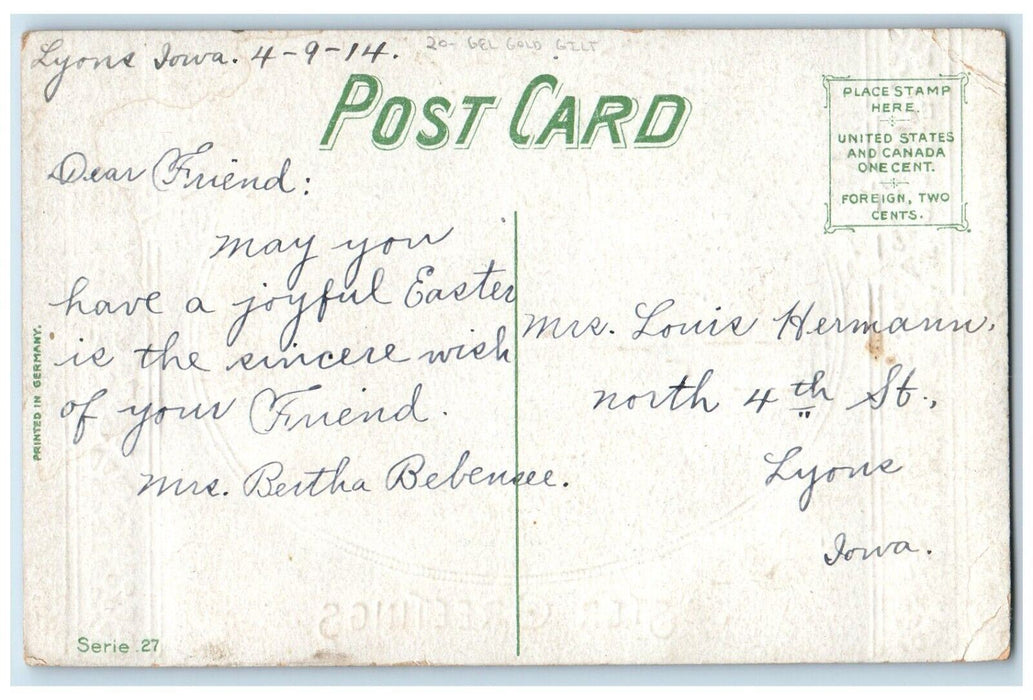 Lyons Iowa. 4-9-14.
20- GEL GOLD GILT
POST CARD
PLACE STAMP
HERE.
UNITED STATES
AND CANADA
ONE CENT.
FOREIGN, TWO
CENTS.
Dear Friend:
May you
have a joyful Easter
is the sincere wish
of your Friend.
Mrs. Bertha Bebensee.
Mrs. Louis Hermann,
North 4th St.,
Lyons
Iowa.
PRINTED IN GERMANY.
Serie 27